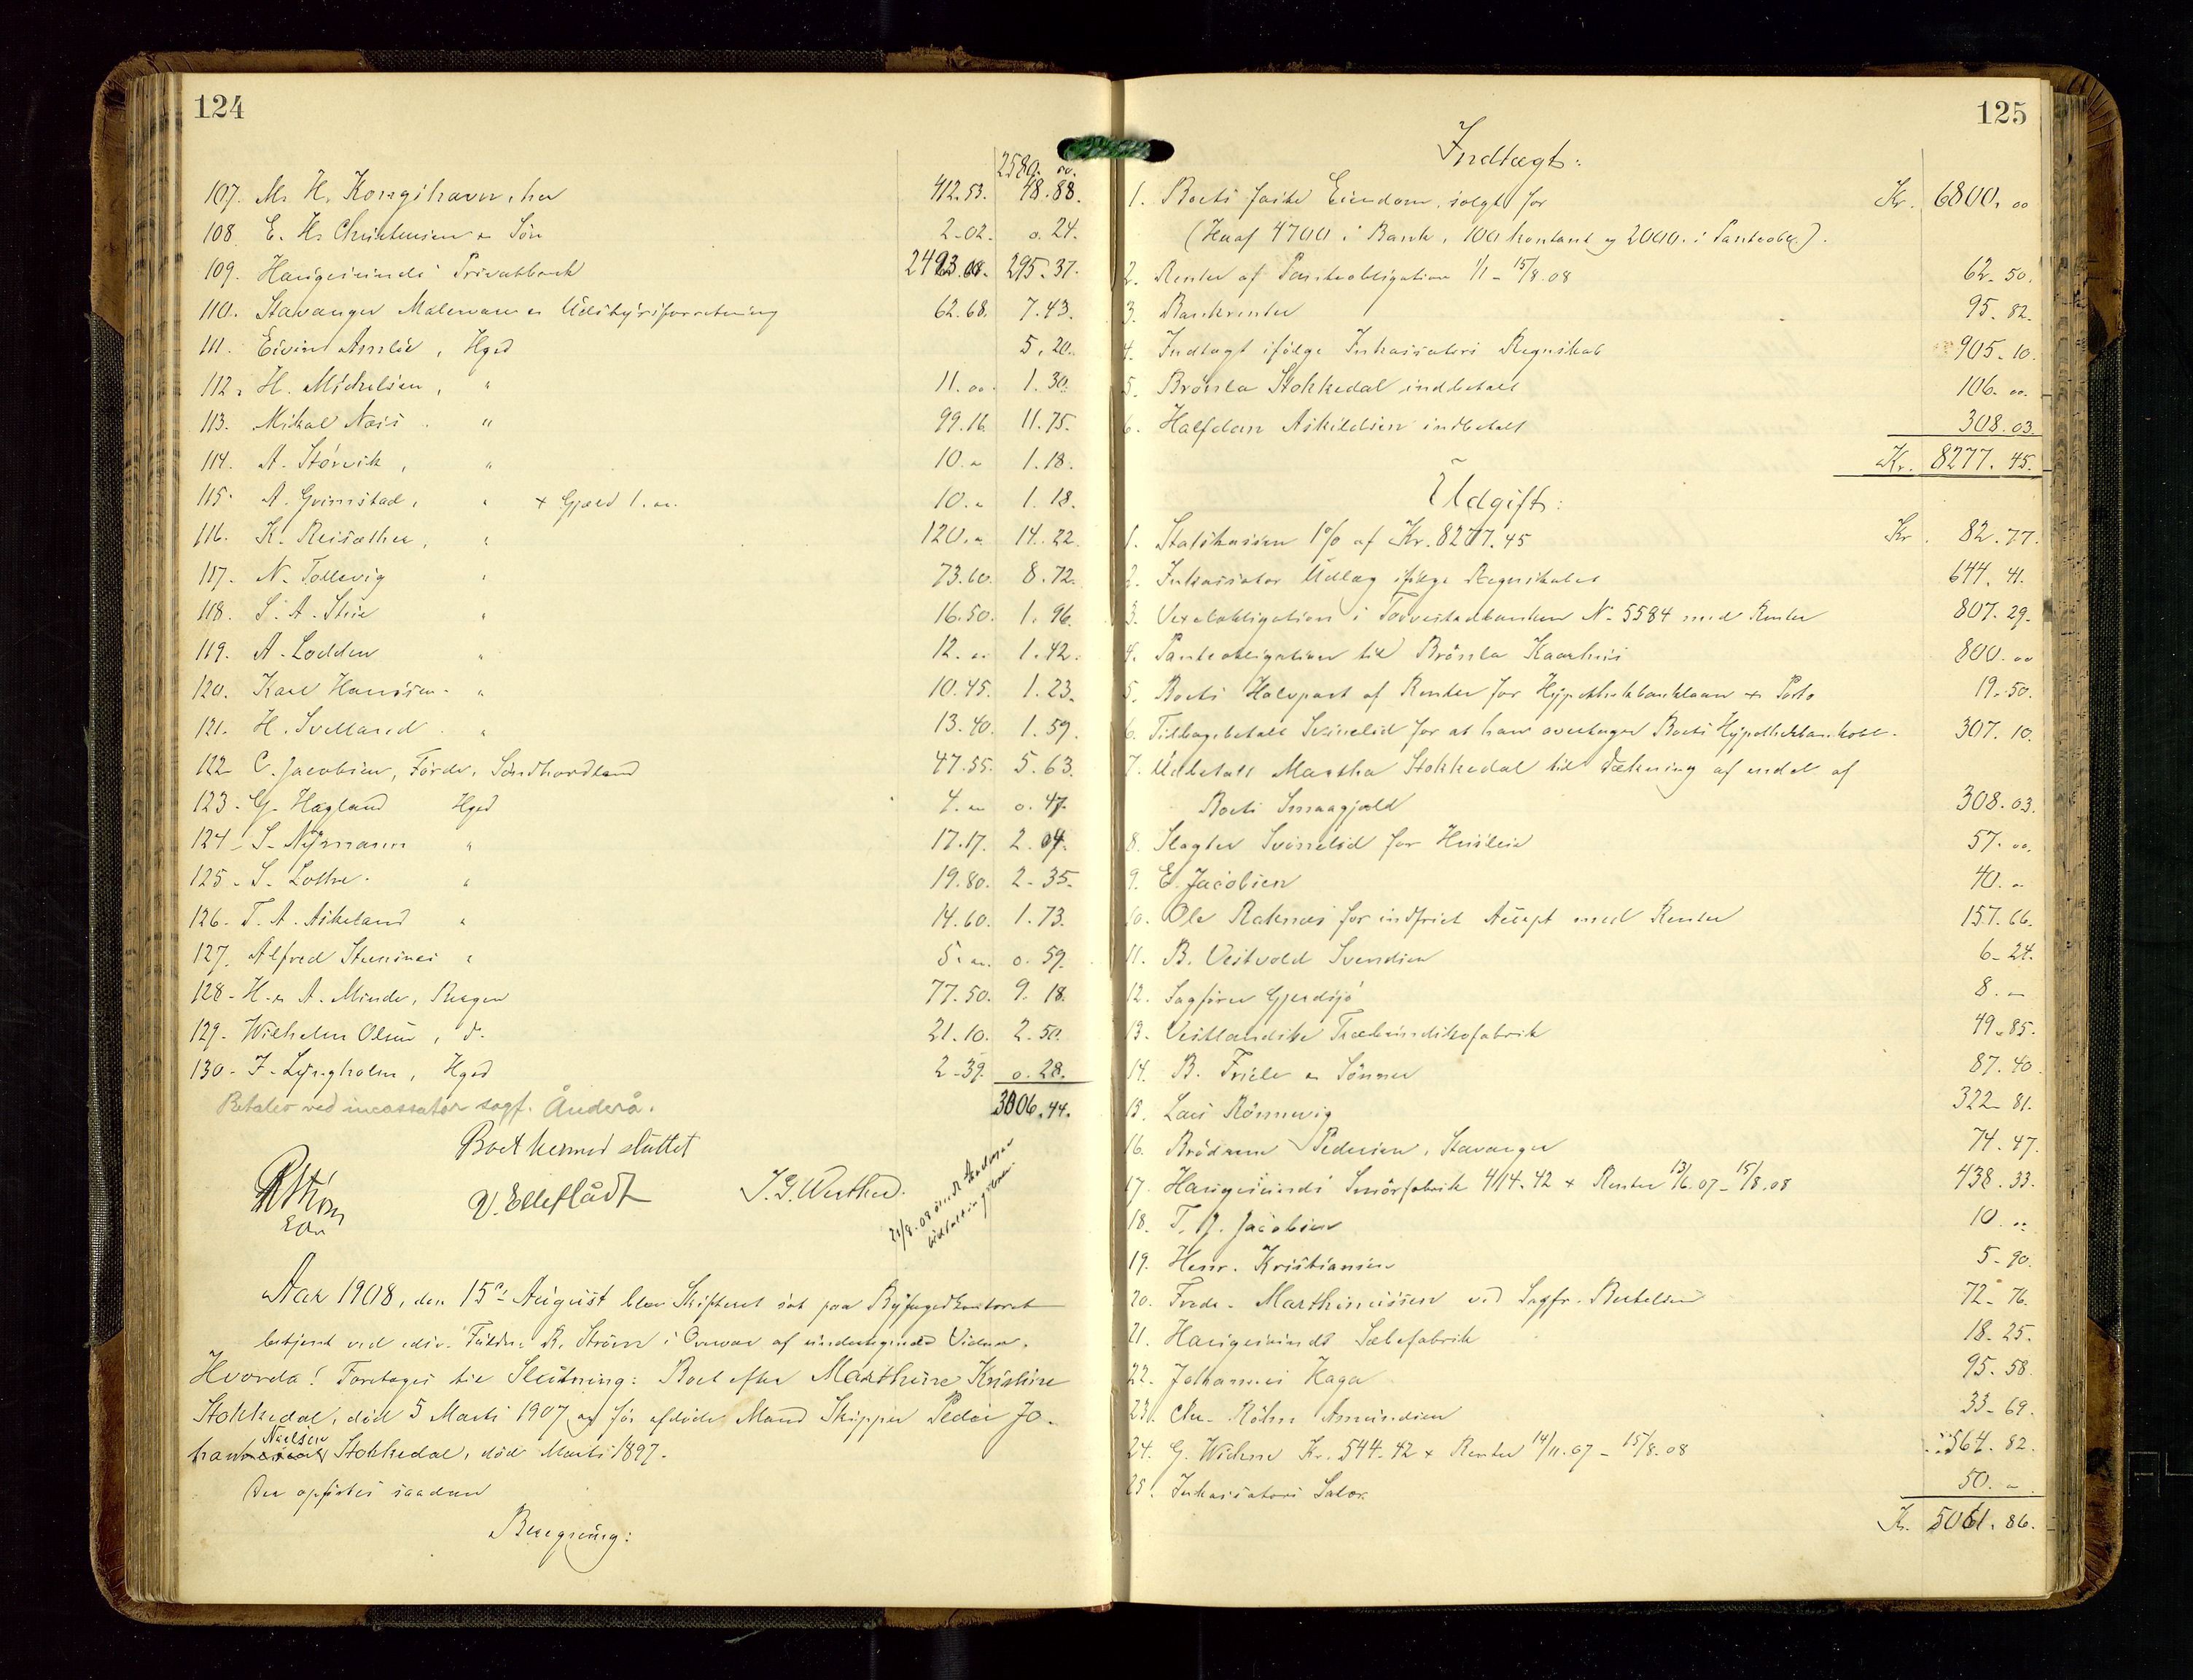 124
2580. 00.
107. M. H. Kongshavn, her 412.53. 48.88.
108. E. H. Christensen & Søn 2-02. 0.24.
109. Haugesunds Privatbank 2493.08. 295.37.
110. Stavanger Malervare & Udstyrsforretning 62.68. 7.43.
111. Eivind Amlie, Hgsd 5.20.
112. H. Michelsen, " 11.00. 1.30.
113. Mikal Næss " 99.16. 11.75.
114. A. Størvik, " 10. " 1.18.
115. A. Grimstad, " + Gjæld 1. 10. " 1.18.
116. K. Reisæther, " 120. " 14.22.
117. N. Tollevig " 73.60. 8.72.
118. S. A. Stue " 16.50. 1.96.
119. A. Lodden " 12. " 1.42.
120. Karl Hanssen " 10.45. 1.23.
121. H. Svelland " 13.40. 1.59.
122 C. Jacobsen, Førde, Søndhordland 47.55. 5.63.
123. G. Hagland Hgsd 4. " 0.47.
124 - S. Nymann " 17.17. 2.04.
125 - S. Lothe " 19.80. 2-35.
126 - T. A. Askeland " 14.60. 1.73.
127. Alfred Stensnes " 5. " 0.59.
128 - H. & A. Minde, Bergen 77.50. 9.18.
129. Wilhelm Olsen, d. 21.10. 2.50.
130 - J. Lyngholm, Hgsd 2-39. 0.28.
Betales ved incassator sagf. Anderå. 3006.44.
Boet hermed sluttet
R Strøm V. Ellefladt J. G. Werther.
Aar 1908, den 15de August blev Skifteret sat paa Byfogedkontoret
betjent ved edsv. Fuldm. R. Strøm i Overvær af undertegnede Vidner.
Hvorda! Foretages til Slutning: Boet efter Marthine Kristine
Stokkedal, død 5 Marts 1907 og før afdøde Mand Skipper Peder Jo-
han Nielsen Stokkedal, død Marts 1897.
Der opførtes saadan
Beregning:
125
Indtægt:
1. Boets faste Eiendom, solgt for Kr. 6800.00
(Heraf 4700 i Bank, 100 kontant og 2000. i Panteobl.).
2. Renter af Panteobligation 1/1 - 15/8.08 62-50.
3. Bankrenter 95.82.
4. Indtægt ifølge Inkassators Regnskab 905-10.
5. Brønla Stokkedal indbetalt 106. 00.
6. Halfdan Askildsen indbetalt 308.03.
Kr. 8277.45.
Udgift:
1. Statskassen 1% af Kr. 8277.45 Kr. 82.77.
2. Inkassators Udlæg ifølge Regnskabet 644.41.
3. Vexelobligation i Torvestadbanken N. 5584 med Renter 807.29.
4. Panteobligation til Brønla Kaarhus 800.00
5. Boets Halvpart af Renter for Hypothekbanklaan + Porto 19.50.
6. Tilbagebetalt Svinelid for at han overtager Boets Hypothekbankobl. 307.10.
7. Udbetalt Martha Stokkedal til Dækning af endel af
Boets Smaagjæld 308.03.
8. Slagter Svinelid for Husleie 57.00.
9. E. Jacobsen 40. "
10. Ole Raknes for indfriet Accept med Renter 157.66.
11. B. Vestvold Svendsen 6-24.
12. Sagfører Gjerdsjø 8. -
13. Vestlandske Træbundskofabrik 49.85.
14. B. Friele & Sønner 87.40.
15. Lars Rønnevig 322-81.
16. Brødrene Pedersen, Stavanger 74.47.
17. Haugesunds Smørfabrik 414.42 + Renter 13/6.07 - 15/8.08 438.33.
18. T. A. Jacobsen 10. 00
19. Henr. Kristiansen 5-90.
20. Fredr. Marthinussen ved Sagfr. Bertelsen 72-76.
21. Haugesunds Sæbefabrik 18-25.
22. Johannes Haga 95-58.
23. Chr. Røhn Amundsen 33-69.
24. G. Wichne Kr. 544.42 + Renter 14/11.07 - 15/8.08 564.82.
25. Inkassators Salær 50. "
Kr. 5061.86.